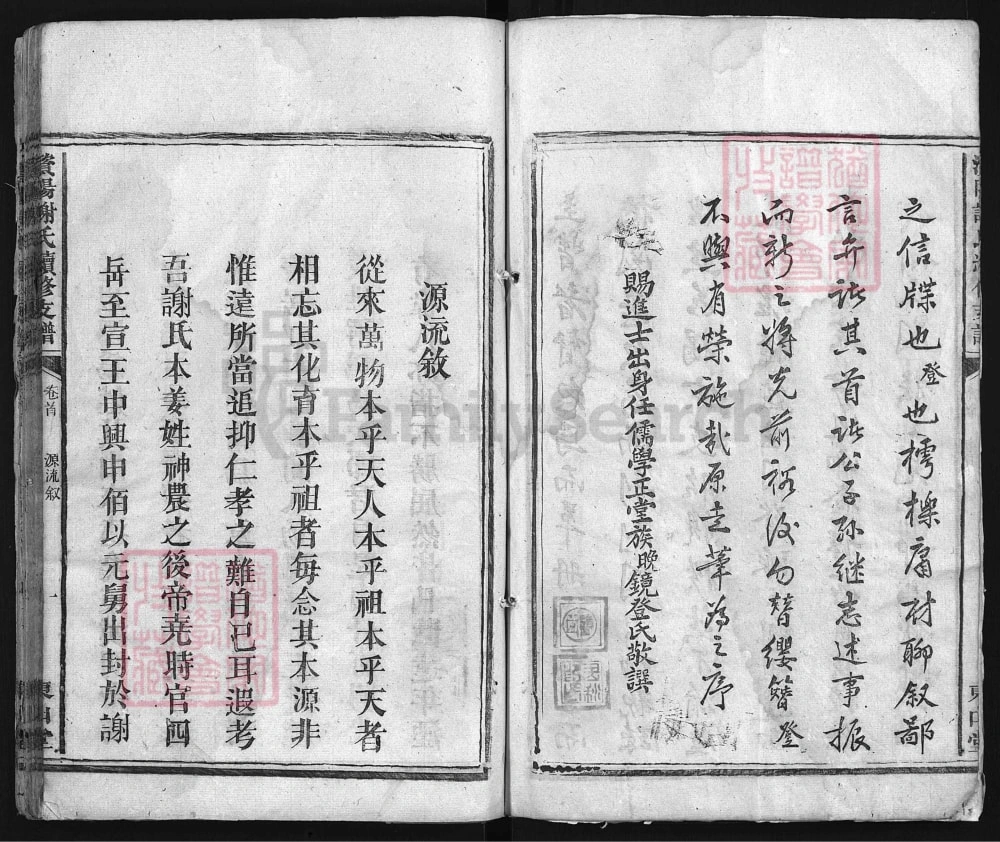 之信牒也登也樗櫟庸材聊叙鄙
言弁諸其首諸公子孫继志述事振
而新之將光前裕後勿替纓簪登
不與有榮施哉原走筆為之序
賜進士出身任儒學正堂族晚鏡登氏敬譔
源流敘
從來萬物本乎天人本乎祖本乎天者
相忘其化育本乎祖者每念其本源非
惟遠所當追抑仁孝之難自已耳遐考
吾謝氏本姜姓神農之後帝堯時官四
岳至宣王中興申伯以元舅出封於謝
謝氏續修支譜
卷首
源流敘
一
東山堂
FamilySearch